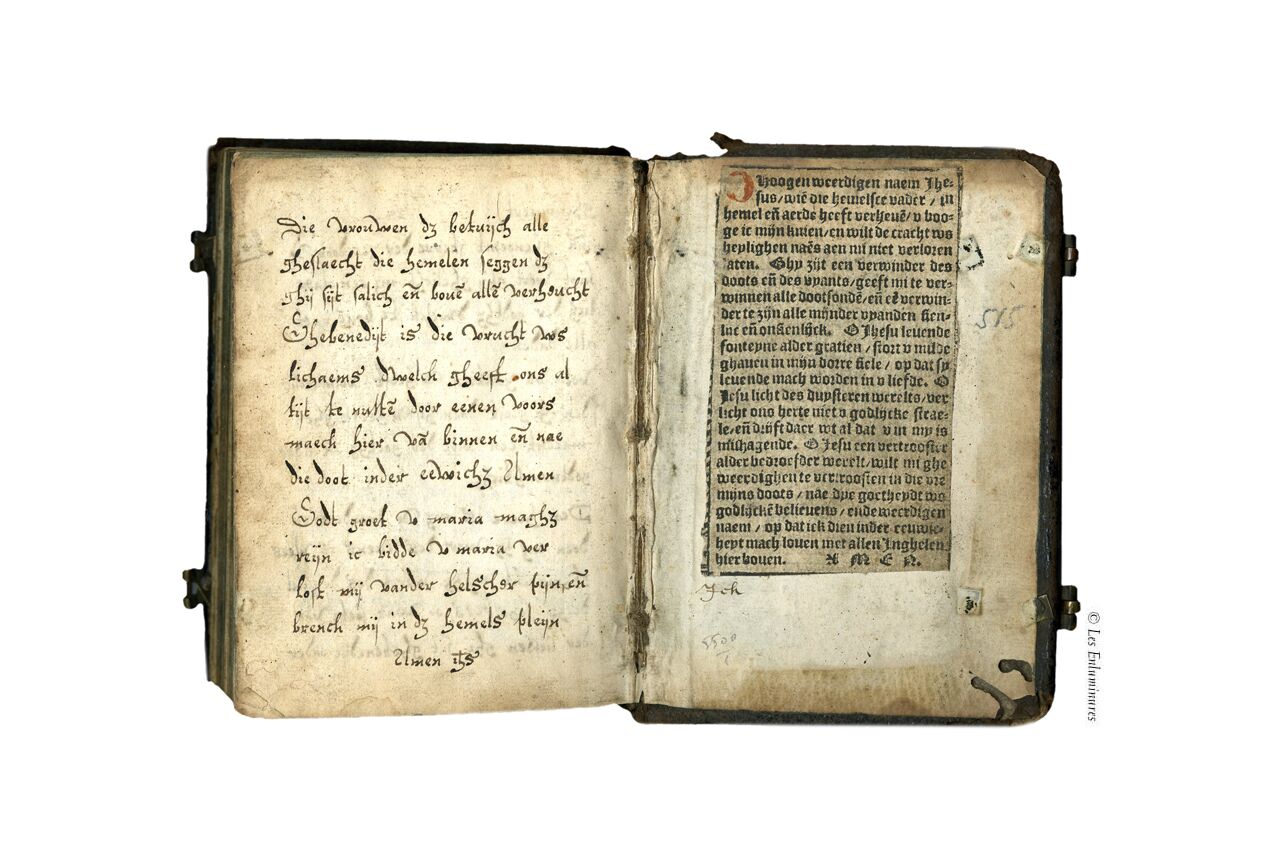 Die vrouwen dz betuijch alle
gheslaecht die hemelen seggen dz
ghij sijt salich eñ bouē allē verheucht
Ghebenedijt is die vrucht ws
lichaems dwelch gheeft ons al
tijt te nuttē door eenen voors
maech hier vā binnen eñ nae
die doot inder eewichz Amen
Godt groet v maria maghz
reijn ic bidde v maria ver
lost mij vander helscher pijn eñ
brench mij in dz hemels pleijn
Amen ihs
O Hoogen weerdigen naem Jhe-
sus/wiē die hemelsce vader/in
hemel eñ aerde heeft verheuē/v boo-
ge ic mijn knien/en wilt de cracht ws
heylighen naēs aen mi niet verloren
laten. Ghy zijt een verwinder des
doots eñ des vyants/geeft mi te ver-
winnen alle dootsondē/eñ eē verwin-
der te zijn alle mijnder vyanden sien-
lijc eñ onsienlijck. O Jhesu leuende
fonteyne alder gratien/stort v milde
ghauen in mijn dorre siele/op dat sy
leuende mach worden in v liefde. O
Jesu licht des duysteren werelts/ver
licht ons herte met v godlijcke strae-
le/eñ drijft daer wt al dat v in my is
mishagende. O Jesu een vertrooster
alder bedroefder werelt/wilt mi ghe
weerdighen te vertroosten in die vre
mijns doots/nae dye goetheydt ws
godlijckē belieuens/ende weerdigen
naem/op dat ick dien inder eeuwic-
heyt mach louen met allen Inghelen
hier bouen. A M E N.
515
Ick
5500
© Les Enluminures